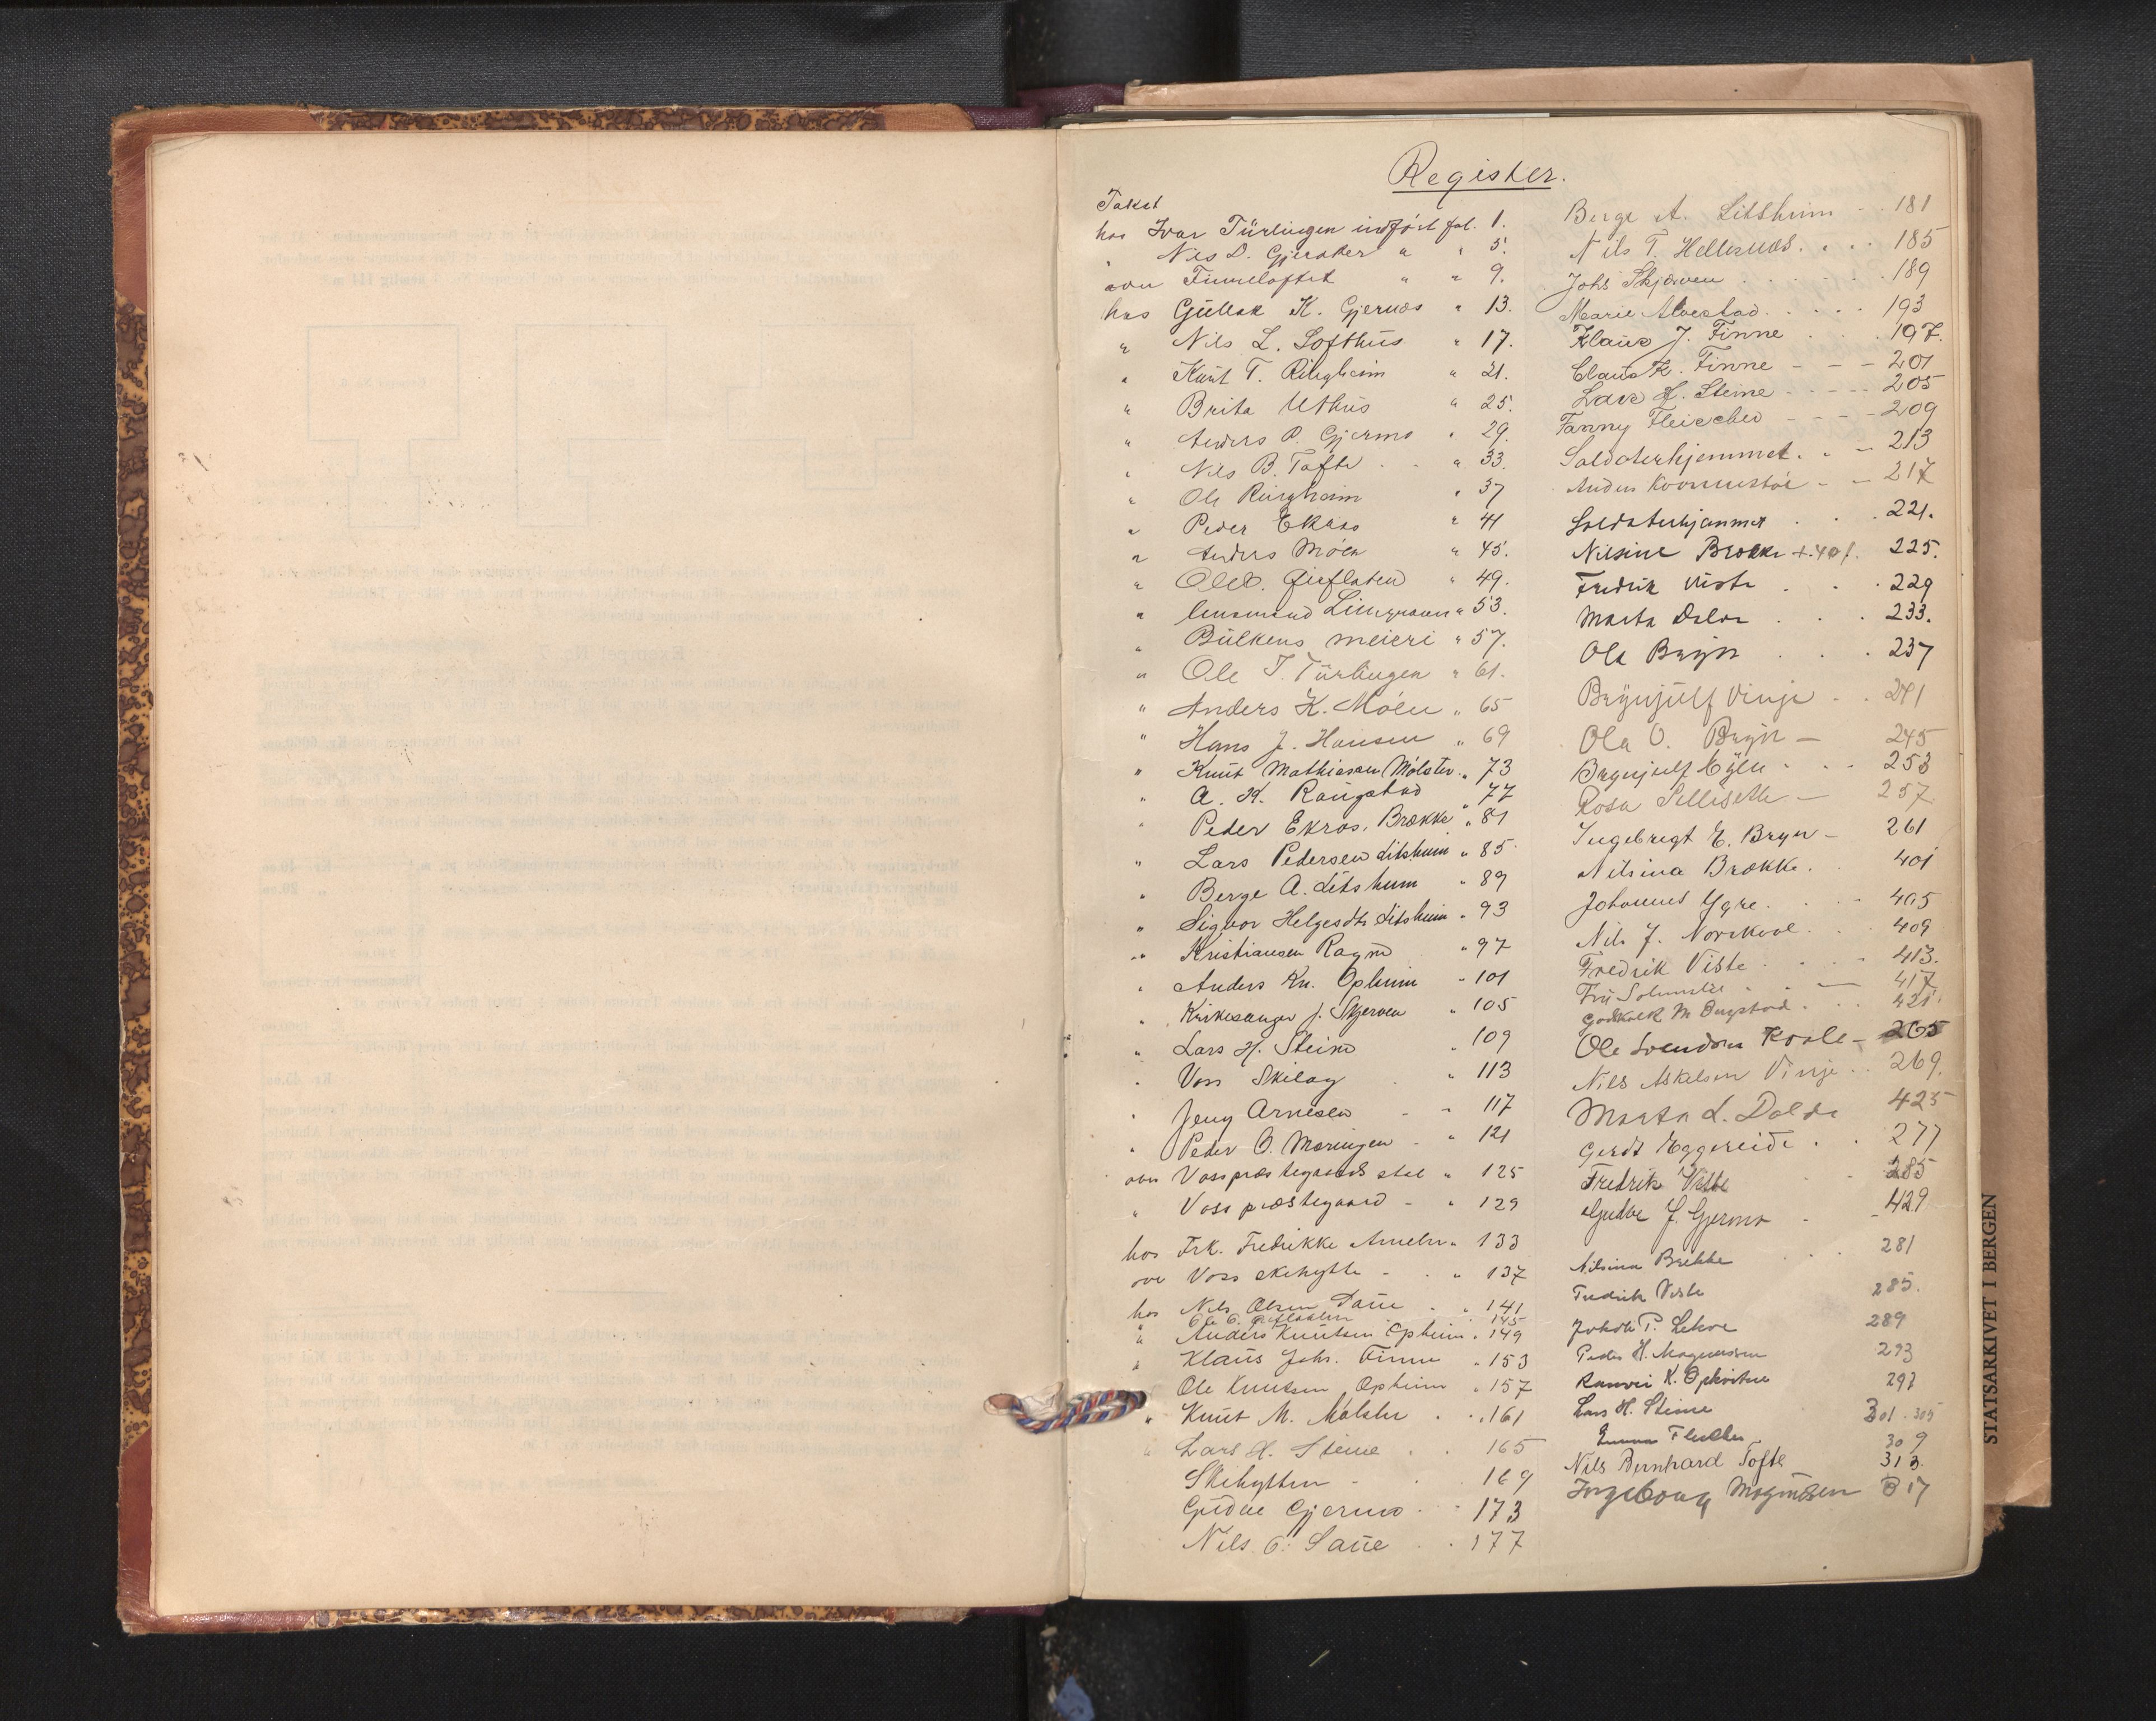 Register.
Takst
hos Ivar Türlingen indført fol. 1.
" Nils D. Gjeraker " " 5.
over Finneloftet " " 9.
hos Gullak K. Gjernes " 13.
" Nils L. Lofthus " 17.
" Knut T. Ringheim " 21.
" Brita Uthus " 25.
" Anders P. Gjermo " 29.
" Nils B. Tofte " 33.
" Ole Ringheim " 37
" Peder Ekraas " 41
" Anders Móen " 45.
" Ole O. Gjeflaten " 49.
" 53.
" Bulkens meieri " 57.
" Ole T. Türlingen " 61.
" Anders K. Móen " 65
" Hans J. Hansen " 69
" Knut Mathiasen Mølster " 73
" A. K. Raugstad " 77
" Peder Ekraas, Brække " 81
" Lars Pedersen Litsheim " 85
" Berge A. Litsheim " 89
" Sigvor Helgesdtr Litsheim " 93
" Kristiansen Ragnv " 97
" Anders Kn. Opheim " 101
" Kirkesanger J. Skjerven " 105
" Lars H. Steine " 109
" Voss Skilag " 113
" Jeny Arnesen - " 117
" Peder O. Mæringen - " 121
over Vosspræstegaards stal " 125
" Voss præstegaard - " 129
hos Frk. Fredrikke Ameln " 133
over Voss skihytte - " 137
hos Nils Olsen Saue " 141
" Ole O. Gjeflaten 145
" Anders Knutsen Opheim " 149
" Klaus Johs. Finne " 153
Ole Knutsen Opheim " 157
" Knut M. Mølster " 161
" Lars H. Steine 165
Skihytten - 169
Gudve Gjermo 173
Nils O. Saue 177
Berge A. Litsheim - 181
Nils T. Hellesnes . . . 185
Johs Skjerven . . . 189
Marie Alvestad . . . 193
Klaus J. Finne . . 197.
Claus K. Finne - - - 201
Lars H. Steine - - - 205
Fanny Fleischer - - - 209
Soldaterhjemmet . . - 213
Anders - - 217
Soldaterhjemmet . . . 221.
Nilsine Brække + 401. 225.
Fredrik Viste . . . 229
Marta Dolve . . . 233.
Ola Bryn . . . 237
Brynjulf Vinje . . 241
Ola O. Bryn - 245
Brynjulf Gjelle . . . 253
Rosa Selleseth - 257
Ingebrigt E. Bryn - 261
Nilsina Brække . . 401
Johannes Ygre . . . 405
Nils J. Norekvol . . 409
Fredrik Viste . . . 413.
Fru - 417
Godskalk M. Bugstad . . . 421
Ole Svendsen Kvale - 265
Nils Askelsen Vinje . . 269.
Marta L. Dolve 425
Gerdt Eggereide . . 277
Fredrik Viste . . 285
Gudve J. Gjermo - 429
Nilsina Brekke . . . 281
Fredrik Viste 285.
Jakob P. Lekve 289
Peder H. Magnussen 293
Ranvei K. Opkvitne 297
Lars H. Steine 301 . 305
Emma Fleischer 309
Nils Bernhard Tofte 313.
Ingeborg Magnussen 317
STATSARKIVET I BERGEN